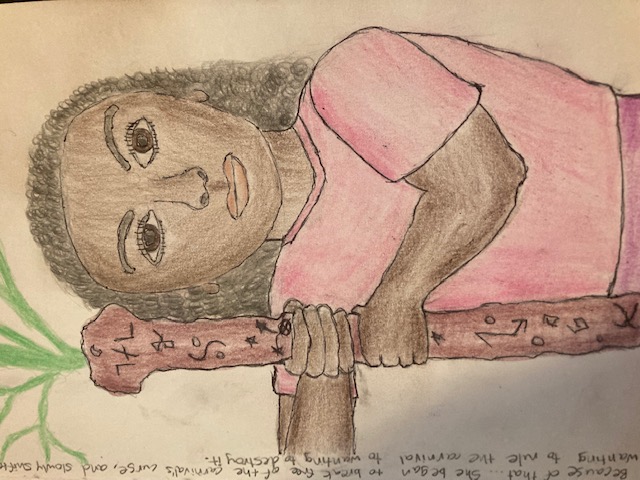 Because of that... She began to break free of the carnival's curse, and slowly shifte
wanting to rule the carnival to wanting to destroy it.